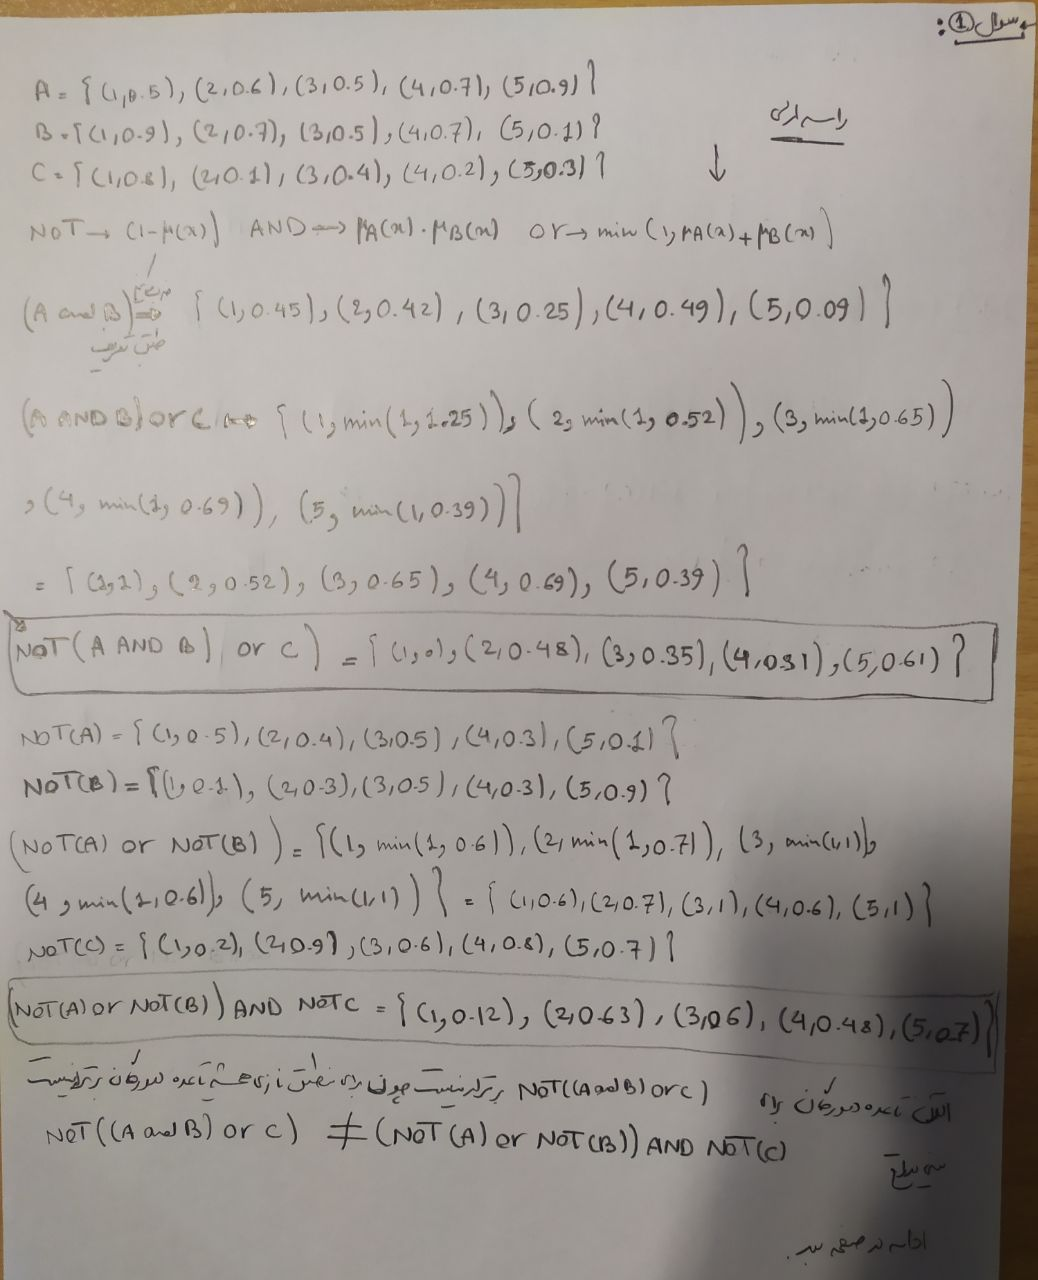 سوال ①:
A = {(1,0.5), (2,0.6), (3,0.5), (4,0.7), (5,0.9)}
B = {(1,0.9), (2,0.7), (3,0.5), (4,0.7), (5,0.1)}
C = {(1,0.8), (2,0.1), (3,0.4), (4,0.2), (5,0.3)}
NOT → (1-μ(x)) AND → μA(x).μB(x) or → min(1, μA(x)+μB(x))
(A and B) ⇒ {(1,0.45), (2,0.42), (3,0.25), (4,0.49), (5,0.09)}
طبق تعریف
(A AND B) or C ⇒ {(1, min(1,1.25)), (2, min(1,0.52)), (3, min(1,0.65))
, (4, min(1,0.69)), (5, min(1,0.39))}
= {(1,1), (2,0.52), (3,0.65), (4,0.69), (5,0.39)}
NOT(A AND B) or C) = {(1,0), (2,0.48), (3,0.35), (4,0.31), (5,0.61)}
NOT(A) = {(1,0.5), (2,0.4), (3,0.5), (4,0.3), (5,0.1)}
NOT(B) = {(1,0.1), (2,0.3), (3,0.5), (4,0.3), (5,0.9)}
(NOT(A) or NOT(B)) = {(1, min(1,0.6)), (2, min(1,0.7)), (3, min(1,1)),
(4, min(1,0.6)), (5, min(1,1))} = {(1,0.6), (2,0.7), (3,1), (4,0.6), (5,1)}
NOT(C) = {(1,0.2), (2,0.9), (3,0.6), (4,0.8), (5,0.7)}
(NOT(A) or NOT(B)) AND NOT C = {(1,0.12), (2,0.63), (3,0.6), (4,0.48), (5,0.7)}
قاعده دمورگان برای NOT((A and B) or C) برقرار نیست چون برای منطق فازی همیشه قاعده دمورگان برقرار نیست
NOT((A and B) or C) ≠ (NOT(A) or NOT(B)) AND NOT(C)
ادامه در صفحه بعد.